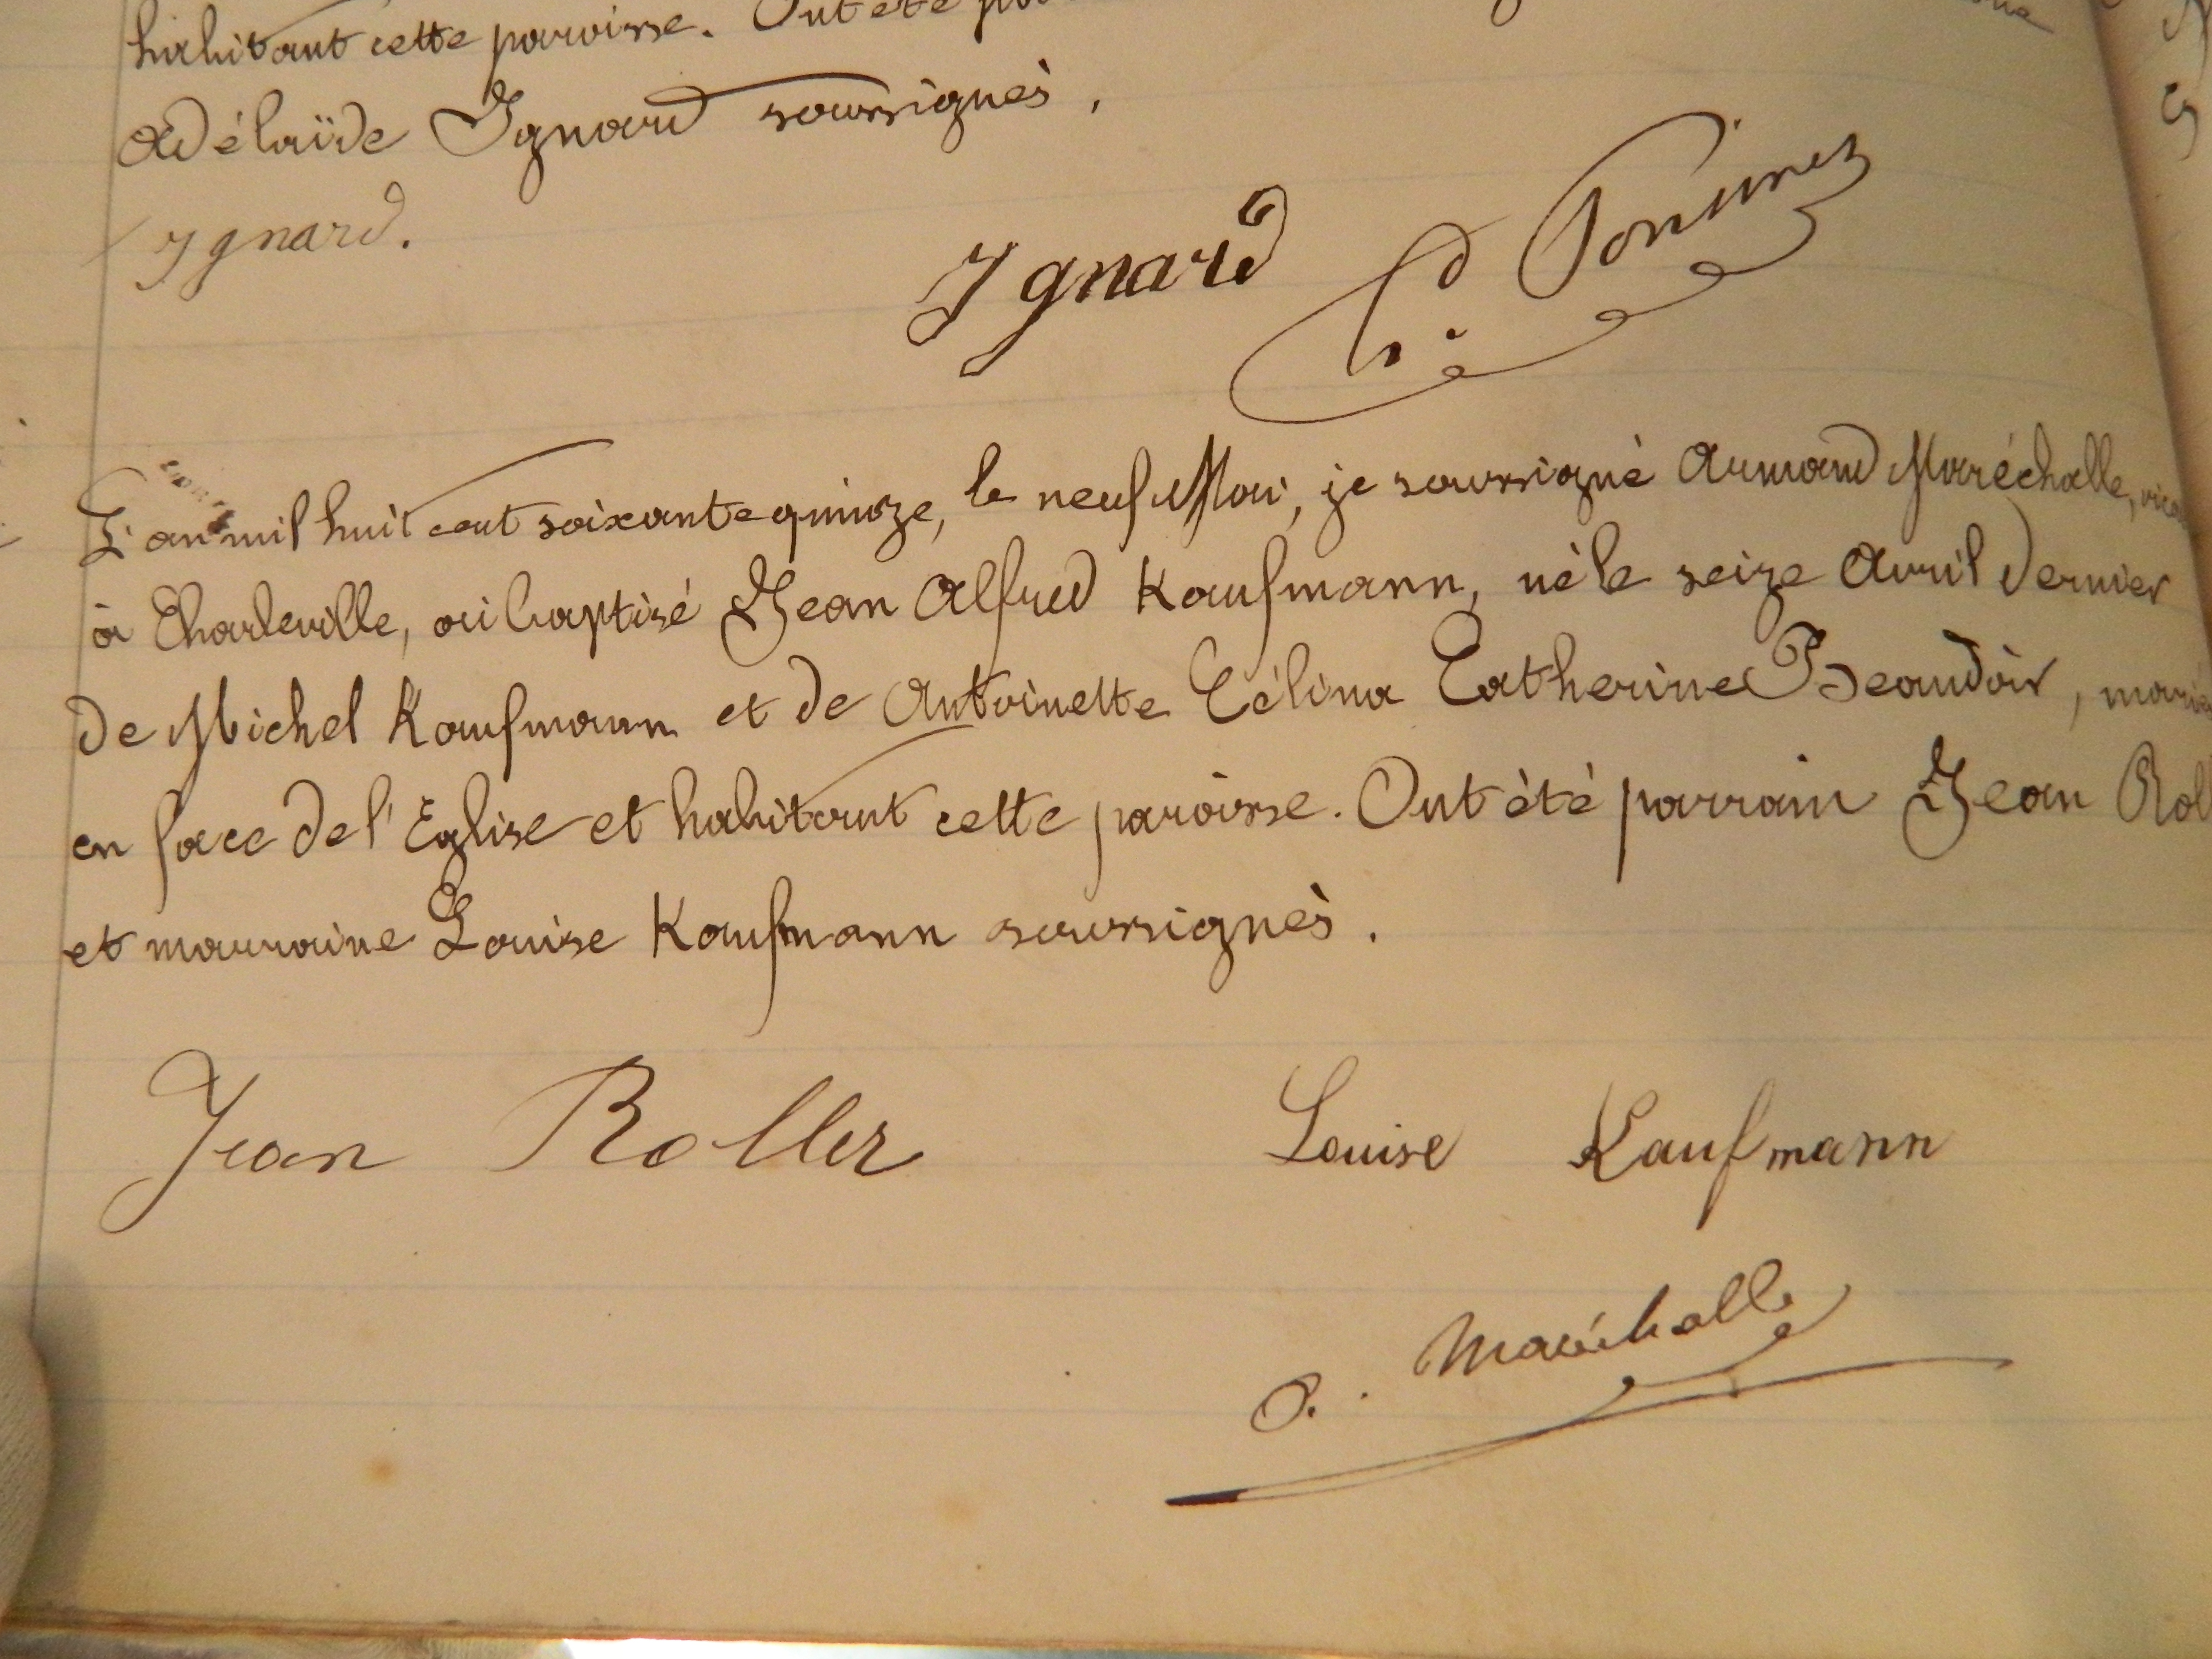 habitant cette paroisse. Ont été
Adélaïde Ignard soussignés.
Ignard.
Ignard
L'an mil huit cent soixante quinze, le neuf Mai, je soussigné Armand Maréchalle,
à Charleville, ai baptisé Jean Alfred Kaufmann, né le seize Avril dernier
de Michel Kaufmann et de Antoinette Célina Catherine Beaudoir,
en face de l'Eglise et habitant cette paroisse. Ont été parrain Jean
et marraine Louise Kaufmann soussignés.
Jean Roller Louise Kaufmann
A. Maréchalle